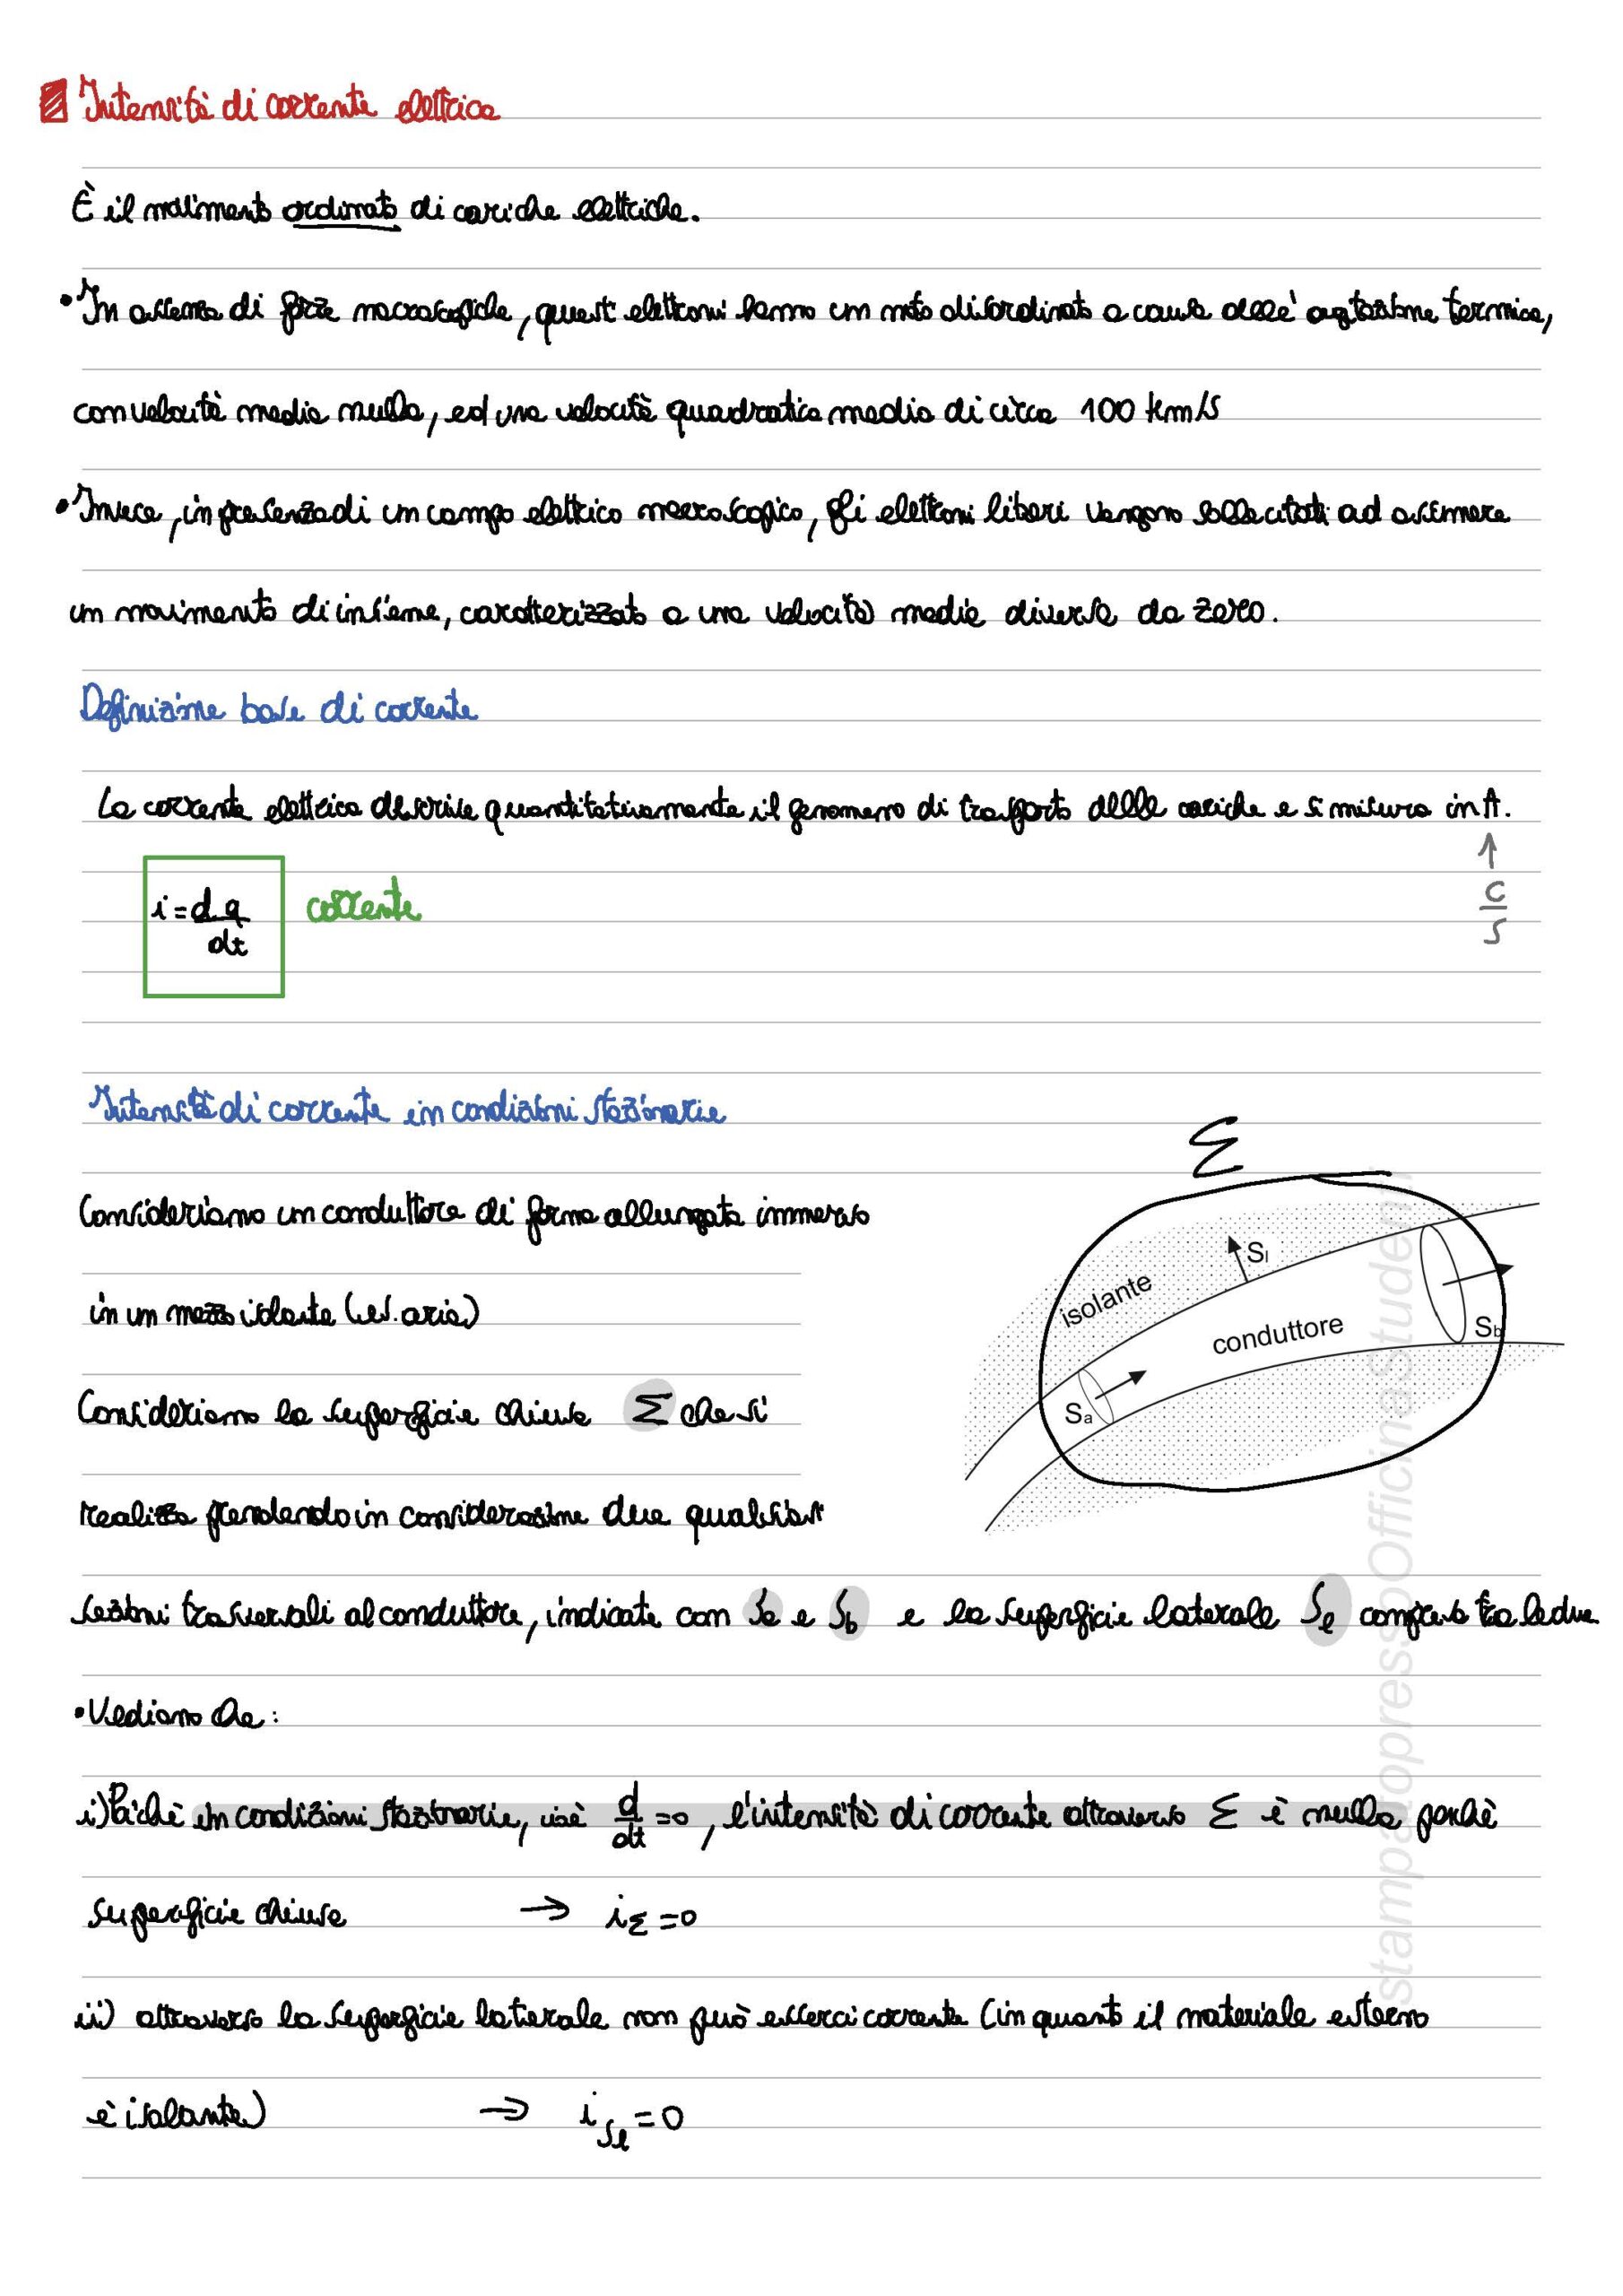 Intensità di corrente elettrica
È il movimento ordinato di cariche elettriche.
• In assenza di forze macroscopiche, questi elettroni hanno un moto disordinato a causa dell'agitazione termica,
con velocità media nulla, ed una velocità quadratica media di circa 100 km/s
• Invece, in presenza di un campo elettrico macroscopico, gli elettroni liberi vengono sollecitati ad assumere
un movimento di insieme, caratterizzato a una velocità media diversa da zero.
Definizione base di corrente
La corrente elettrica descrive quantitativamente il fenomeno di trasporto delle cariche e si misura in A.
↑
C/s
i = dq/dt corrente
Intensità di corrente in condizioni stazionarie
Consideriamo un conduttore di forma allungata immerso
in un mezzo isolante (es. aria)
Consideriamo la superficie chiusa Σ che si
realizza prendendo in considerazione due qualsiasi
sezioni trasversali al conduttore, indicate con Sa e Sb e la superficie laterale Sl compresa tra le due
Σ
isolante
Sl
conduttore
Sb
Sa
• Vediamo che:
i) Poiché in condizioni stazionarie, cioè d/dt =0, l'intensità di corrente attraverso Σ è nulla perché
superficie chiusa → iΣ =0
ii) attraverso la superficie laterale non può esserci corrente (in quanto il materiale esterno
è isolante) → iSl =0
stampatopressoOfficinaStudenti